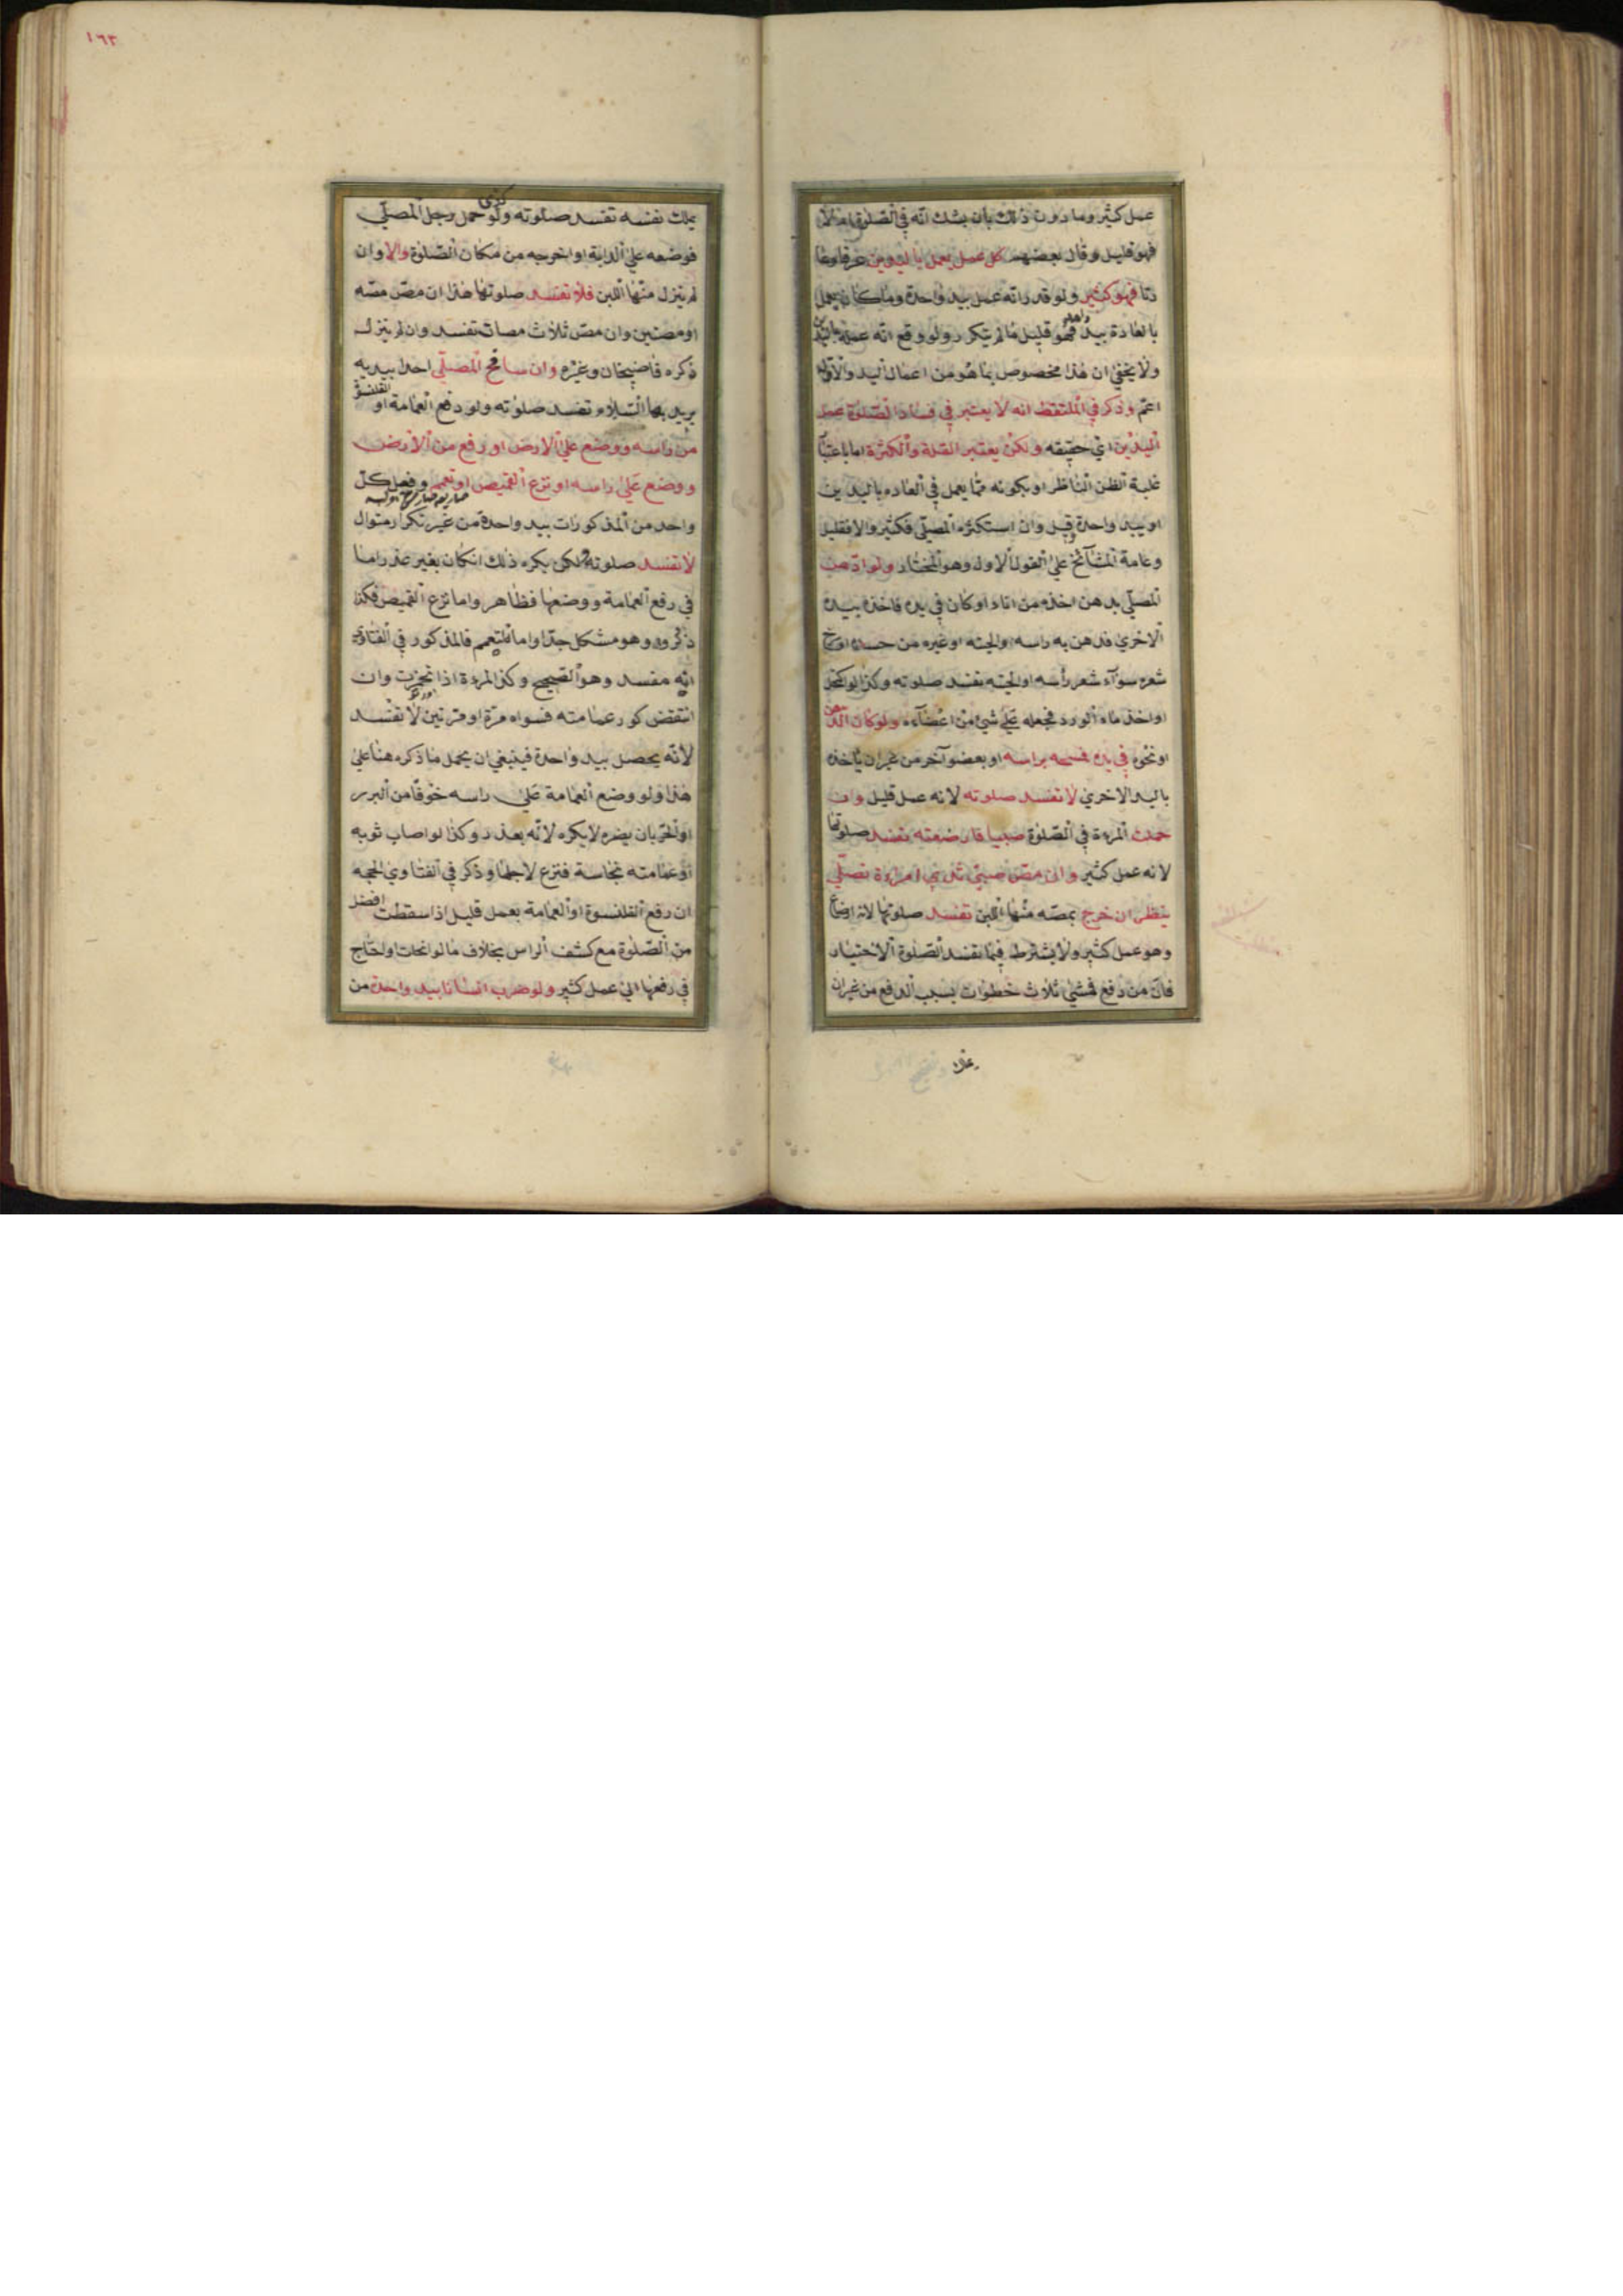 عمل كثير وما دون ذلك بان يشك انه في الصلوة ام لا
فهو قليل وقال بعضهم كل عمل يعمل باليدين عرفا وعا
دتا فهو كثير ولو قدر انه عمل بيد واحدة وما كان يعمل
بالعادة بيد واحدة فهو قليل ما لم يتكرر ولو وقع انه عمله باليدين
ولا يخفى ان هذا مخصوص بما هو من اعمال اليد والاول
اعم وذكر في الملتقط انه لا يعتبر في فساد الصلوة عمل
اليدين اي حقيقه ولكن يعتبر القلة والكثرة اما باعتبار
غلبة الظن الناظر او بكونه مما يعمل في العاده باليدين
او بيد واحدة قيل وان استكثره المصلي فكثير والا فقليل
وعامة المشآئخ على القول الاول وهو المختار ولو ادهن
المصلي بدهن اخذه من اناء او كان في يده فاخذه بيده
الاخرى فدهن به راسه او لحيته او غيره من جسده او سرح
شعره سوآء شعر رأسه او لحيته تفسد صلوته وكذا لو اكتحل
او اخذ ماء الورد فجعله على شئ من اعضآءه ولو كان الدهن
او نحوه في يده فمسحه براسه او بعضو آخر من غير ان ياخذه
باليد الاخرى لا تفسد صلوته لانه عمل قليل وان
حملت المرءة في الصلوة صبيا فارضعته تفسد صلوتها
لانه عمل كثير وان مص صبي ثدي امراءة تصلي
ينظر ان خرج بمصه منها اللبن تفسد صلوتها لانه ارضاع
وهو عمل كثير ولا يشترط فيما تفسد الصلوة الاختيار
فان من دفع فمشى ثلاث خطوات بسبب الدفع من غير ان
يملك
١٦٣
يملك نفسه تفسد صلوته وكذى لو حمل رجل المصلي
فوضعه على الدابة او اخرجه من مكان الصلوة والا وان
لم ينزل منها اللبن فلا تفسد صلوتها هذا ان مص مصه
او مصتين وان مص ثلاث مصات تفسد وان لم ينزل
ذكره قاضيخان وغيره وان صافح المصلي احدا بيديه
يريد بها السلام تفسد صلوته ولو رفع العمامة او القلنسوة
من راسه ووضع على الارض او رفع من الارض
ووضع على راسه او نزع القميص او تعمم وفعل كل
واحد من المذكورات بيد واحدة من غير تكرار متوال
لا تفسد صلوته لكن يكره ذلك انكان بغير عذر اما
في رفع العمامة ووضعها فظاهر واما نزع القميص فكذا
ذكروه وهو مشكل جدا واما التعمم فالمذكور في الفتاوى
انه مفسد وهو الصحيح وكذا المرءة اذا تخمرت وان
انتقض كور عمامته فسواه مرة او مرتين لا تفسد
لانه يحصل بيد واحدة فينبغي ان يحمل ما ذكره هنا على
هذا ولو وضع العمامة على راسه خوفا من البرد
او الحر بان يضره لا يكره لانه بعذر وكذا لو اصاب ثوبه
او عمامته نجاسة فنزع لاجلها وذكر في الفتاوى الحجه
ان رفع القلنسوة او العمامة بعمل قليل اذا سقطت افضل
من الصلوة مع كشف الراس بخلاف ما لو انحلت واحتاج
في رفعها الى عمل كثير ولو ضرب انسانا بيد واحدة من